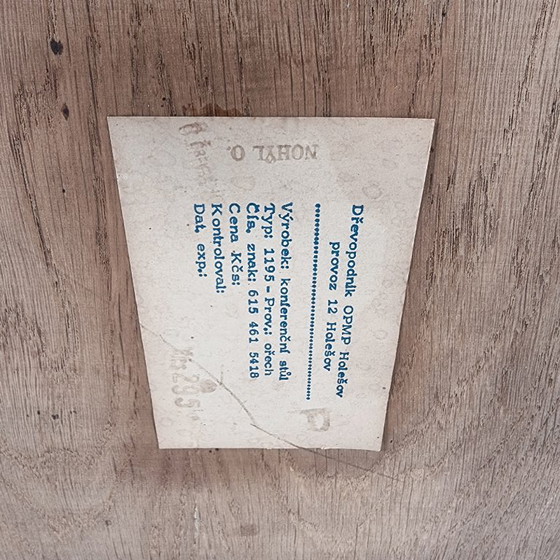 Dřevopodnik OPMP Holešov
provoz 12 Holešov
Výrobek: konferenční stůl
Typ: 1195 - Prov.: ořech
Čís. znak: 615 461 5418
Cena Kčs:
Kontroloval:
Dat. exp.:
NOHÝL O.